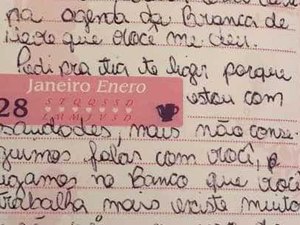 na agenda da Branca de
Neve que você me deu.
Pedi pra tia te ligar porque
Janeiro Enero
estou com
28
S T Q Q S S D
L M M J V S D
saudades, mais não conse
guimos falar com você, e
ligamos no banco que você
trabalha mais existe muito